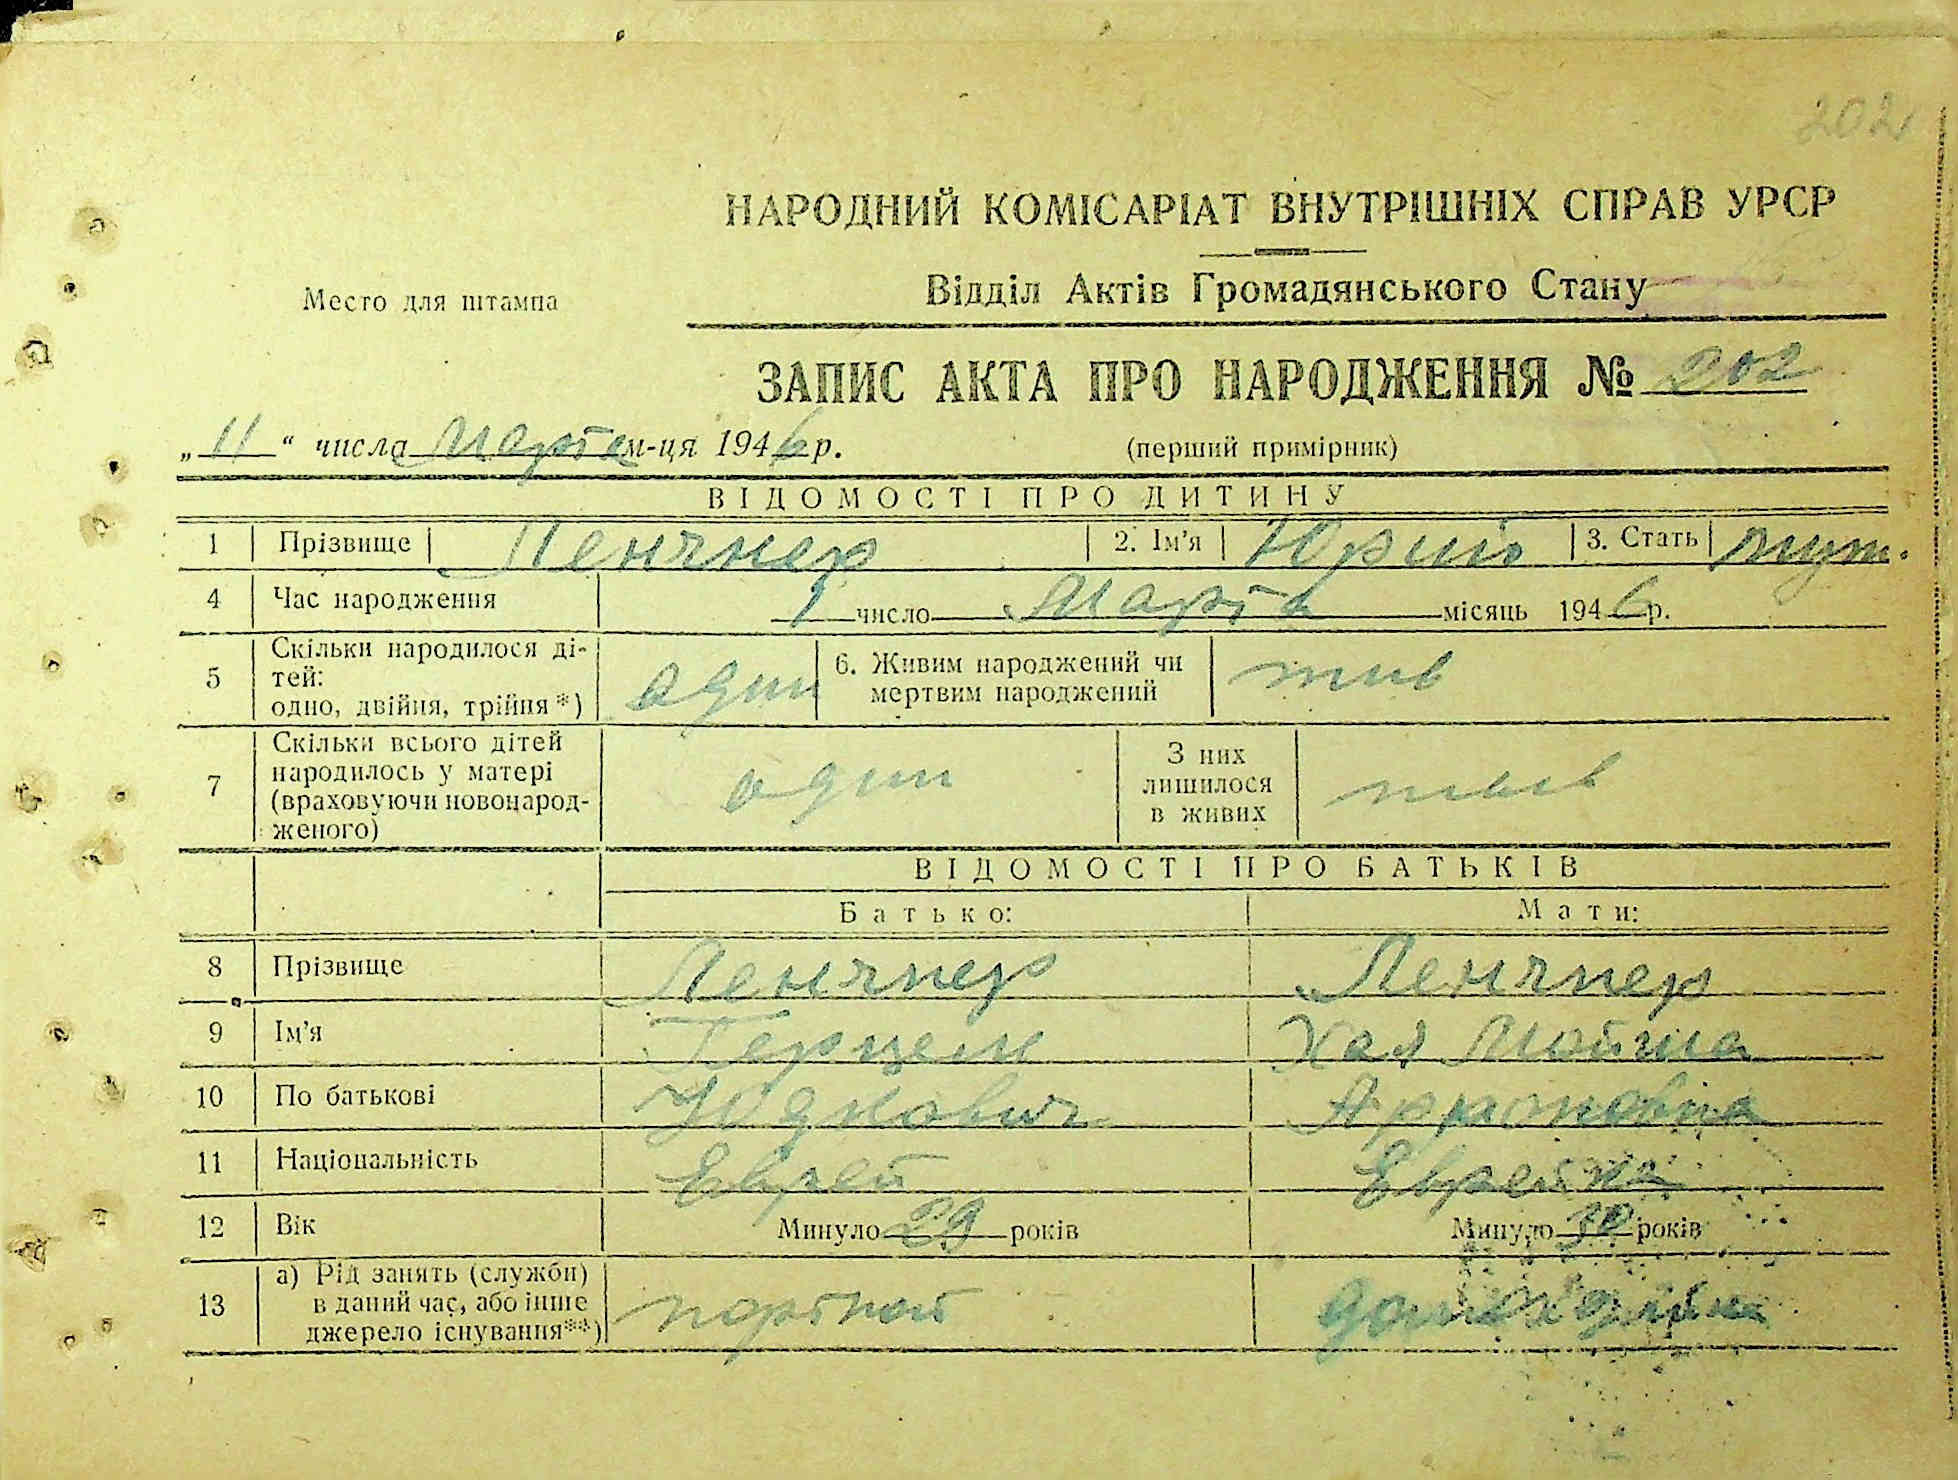 202
НАРОДНИЙ КОМІСАРІАТ ВНУТРІШНІХ СПРАВ УРСР
Место для штампа
Відділ Актів Громадянського Стану
ЗАПИС АКТА ПРО НАРОДЖЕННЯ № 202
„11“ числа Марта м-ця 1946 р.
(перший примірник)
ВІДОМОСТІ ПРО ДИТИНУ
1 Прізвище Ленчнер 2. Ім'я Юрий 3. Стать муж.
4 Час народження 1 число Марта місяць 1946 р.
5 Скільки народилося ді-
тей:
одно, двійня, трійня *) один
6. Живим народжений чи
мертвим народжений жив
7 Скільки всього дітей
народилось у матері
(враховуючи новонарод-
женого) один
З них
лишилося
в живих жив
ВІДОМОСТІ ПРО БАТЬКІВ
Батько: Мати:
8 Прізвище Ленчнер Ленчнер
9 Ім'я Герцель Хая
10 По батькові Юдкович Ароновна
11 Національність Еврей Еврейка
12 Вік Минуло 29 років Минуло 30 років
13 а) Рід занять (служби)
в даний час, або інше
джерело існування**) портной